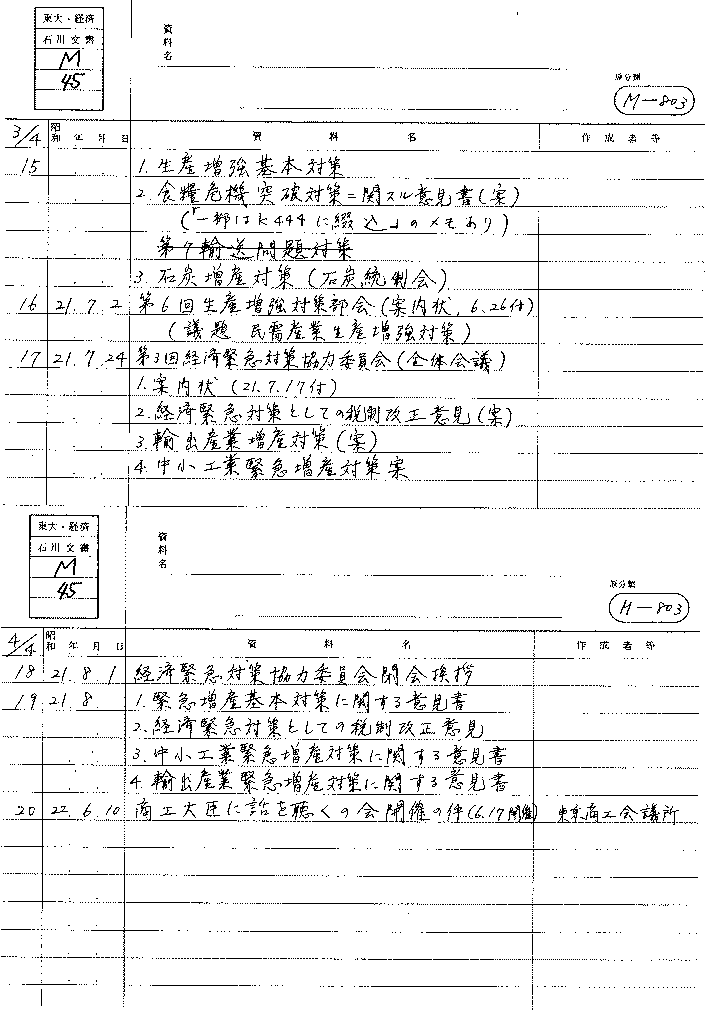 東大・経済
石川文書
M
45
資料名
原分類
M-803
3/4 昭和 年 月 日 資 料 名 作 成 者 等
15 1. 生産増強基本対策
2. 食糧危機突破対策ニ関スル意見書(案)
(「一部はK444に綴込」のメモあり)
第7輸送問題対策
3. 石炭増産対策(石炭統制会)
16 21. 7. 2 第6回生産増強対策部会(案内状, 6.26付)
(議題 民需産業生産増強対策)
17 21. 7. 24 第3回経済緊急対策協力委員会(全体会議)
1. 案内状(21.7.17付)
2. 経済緊急対策としての税制改正意見(案)
3. 輸出産業増産対策(案)
4. 中小工業緊急増産対策案
東大・経済
石川文書
M
45
資料名
原分類
M-803
4/4 昭和 年 月 日 資 料 名 作 成 者 等
18 21. 8. 1 経済緊急対策協力委員会閉会挨拶
19 21. 8. 1. 緊急増産基本対策に関する意見書
2. 経済緊急対策としての税制改正意見
3. 中小工業緊急増産対策に関する意見書
4. 輸出産業緊急増産対策に関する意見書
20 22. 6. 10 商工大臣に話を聴くの会開催の件(6.17開催) 東京商工会議所